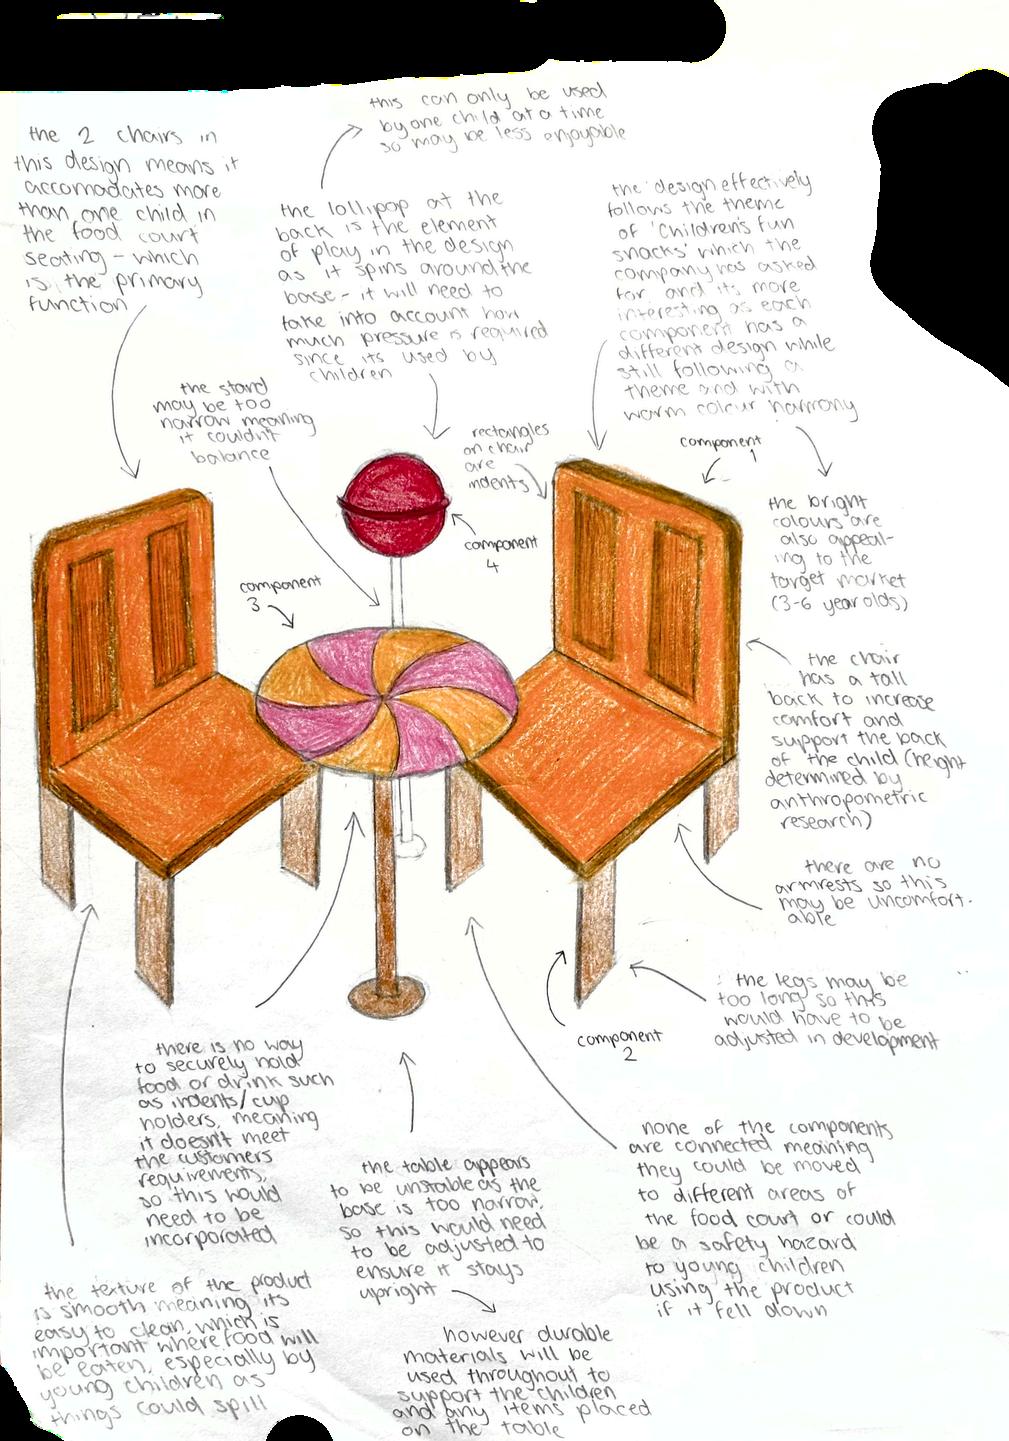 this can only be used
by one child at a time
so may be less enjoyable
the 2 chairs in
this design means it
accomodates more
than one child in
the food court
seating - which
is the primary
function
the lollipop at the
back is the element
of play in the design
as it spins around the
base - it will need to
take into account how
much pressure is required
since its used by
children
the design effectively
follows the theme
of 'Children's fun
snacks' which the
company has asked
for and its more
interesting as each
component has a
different design while
still following a
theme and with
warm colour harmony
the stand
may be too
narrow meaning
it couldn't
balance
rectangles
on chair
are
indents
component
1
component
4
component
3
the bright
colours are
also appeal-
ing to the
target market
(3-6 year olds)
the chair
has a tall
back to increase
comfort and
support the back
of the child (height
determined by
anthropometric
research)
there are no
armrests so this
may be uncomfort-
able
the legs may be
too long so this
would have to be
adjusted in development
component
2
there is no way
to securely hold
food or drink such
as indents/cup
holders, meaning
it doesn't meet
the customers
requirements,
so this would
need to be
incorporated
the table appears
to be unstable as the
base is too narrow,
so this would need
to be adjusted to
ensure it stays
upright
none of the components
are connected meaining
they could be moved
to different areas of
the food court or could
be a safety hazard
to young children
using the product
if it fell down
the texture of the product
is smooth meaning its
easy to clean, which is
important where food will
be eaten, especially by
young children as
things could spill
however durable
materials will be
used throughout to
support the children
and any items placed
on the table